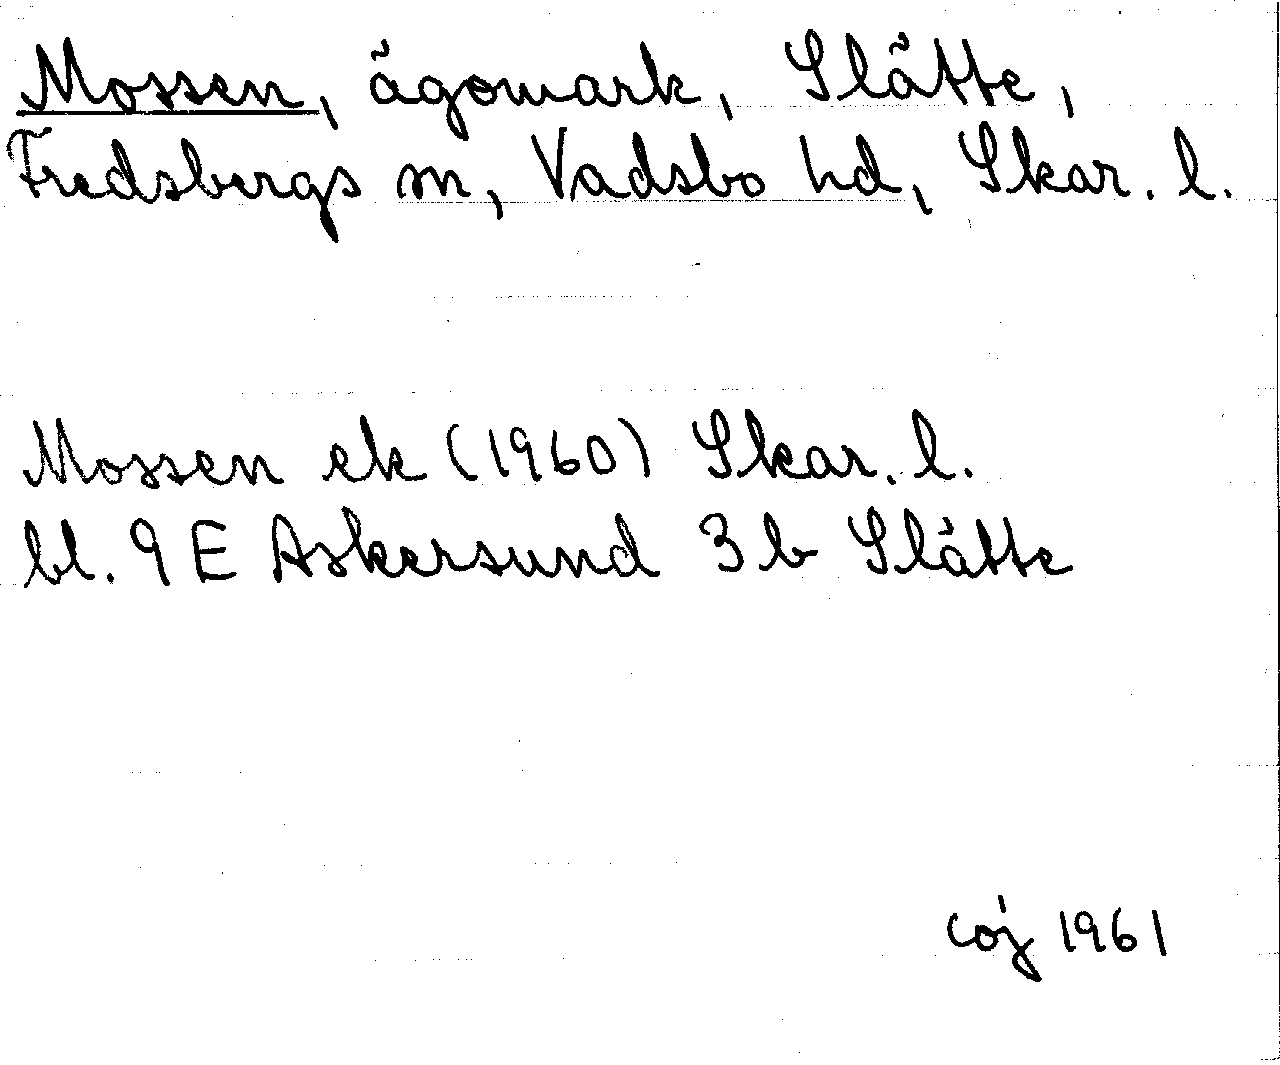 Mossen, ägomark, Slätte,
Fredsbergs sn, Vadsbo hd, Skar. l.
Mossen ek (1960) Skar. l.
bl. 9 E Askersund 3 b Slätte
coj 1961